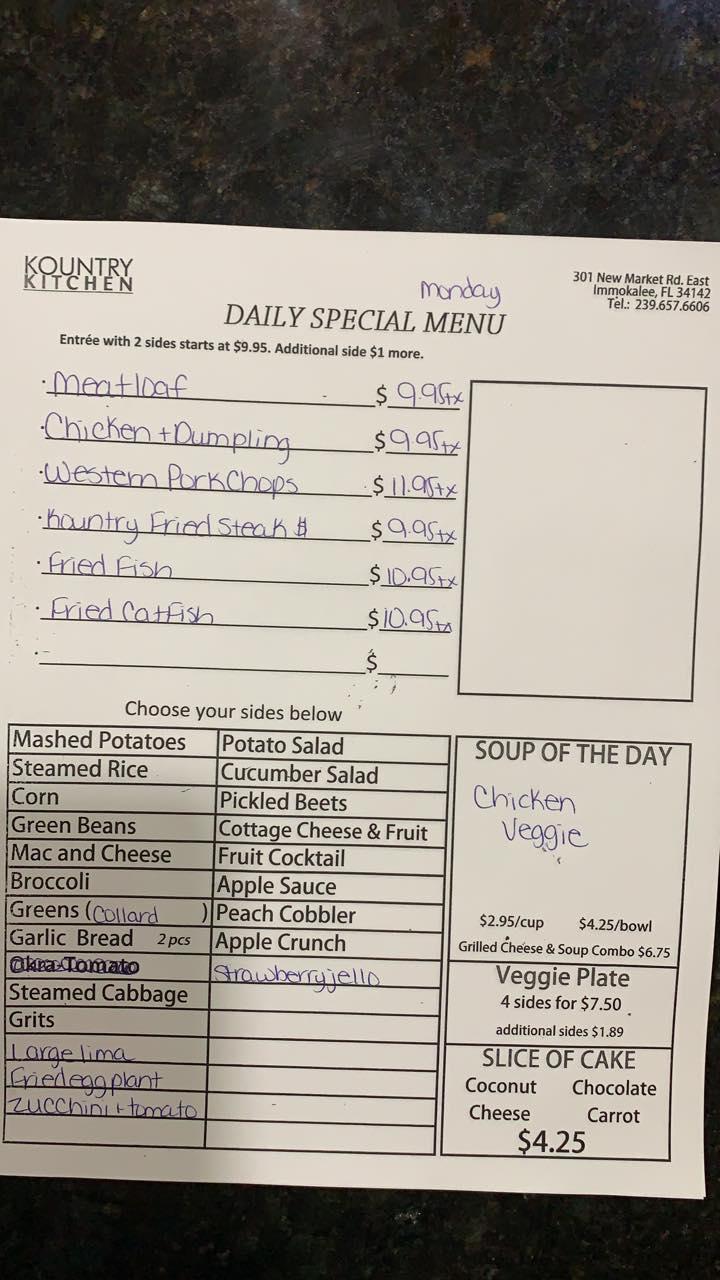 KOUNTRY
KITCHEN
301 New Market Rd. East
Immokalee, FL 34142
Tel.: 239.657.6606
monday
DAILY SPECIAL MENU
Entrée with 2 sides starts at $9.95. Additional side $1 more.
· Meatloaf $ 9.95+x
· Chicken + Dumpling $ 9.95+x
· Western Pork Chops $ 11.95+x
· Kountry Fried Steak $ $ 9.95+x
· Fried Fish $ 10.95+x
· Fried Catfish $ 10.95+x
· $
Choose your sides below
Mashed Potatoes
Steamed Rice
Corn
Green Beans
Mac and Cheese
Broccoli
Greens (Collard )
Garlic Bread 2 pcs
Okra Tomato
Steamed Cabbage
Grits
Large lima
Fried eggplant
Zucchini + tomato
Potato Salad
Cucumber Salad
Pickled Beets
Cottage Cheese & Fruit
Fruit Cocktail
Apple Sauce
Peach Cobbler
Apple Crunch
Strawberry jello
SOUP OF THE DAY
Chicken
Veggie
$2.95/cup $4.25/bowl
Grilled Cheese & Soup Combo $6.75
Veggie Plate
4 sides for $7.50
additional sides $1.89
SLICE OF CAKE
Coconut Chocolate
Cheese Carrot
$4.25